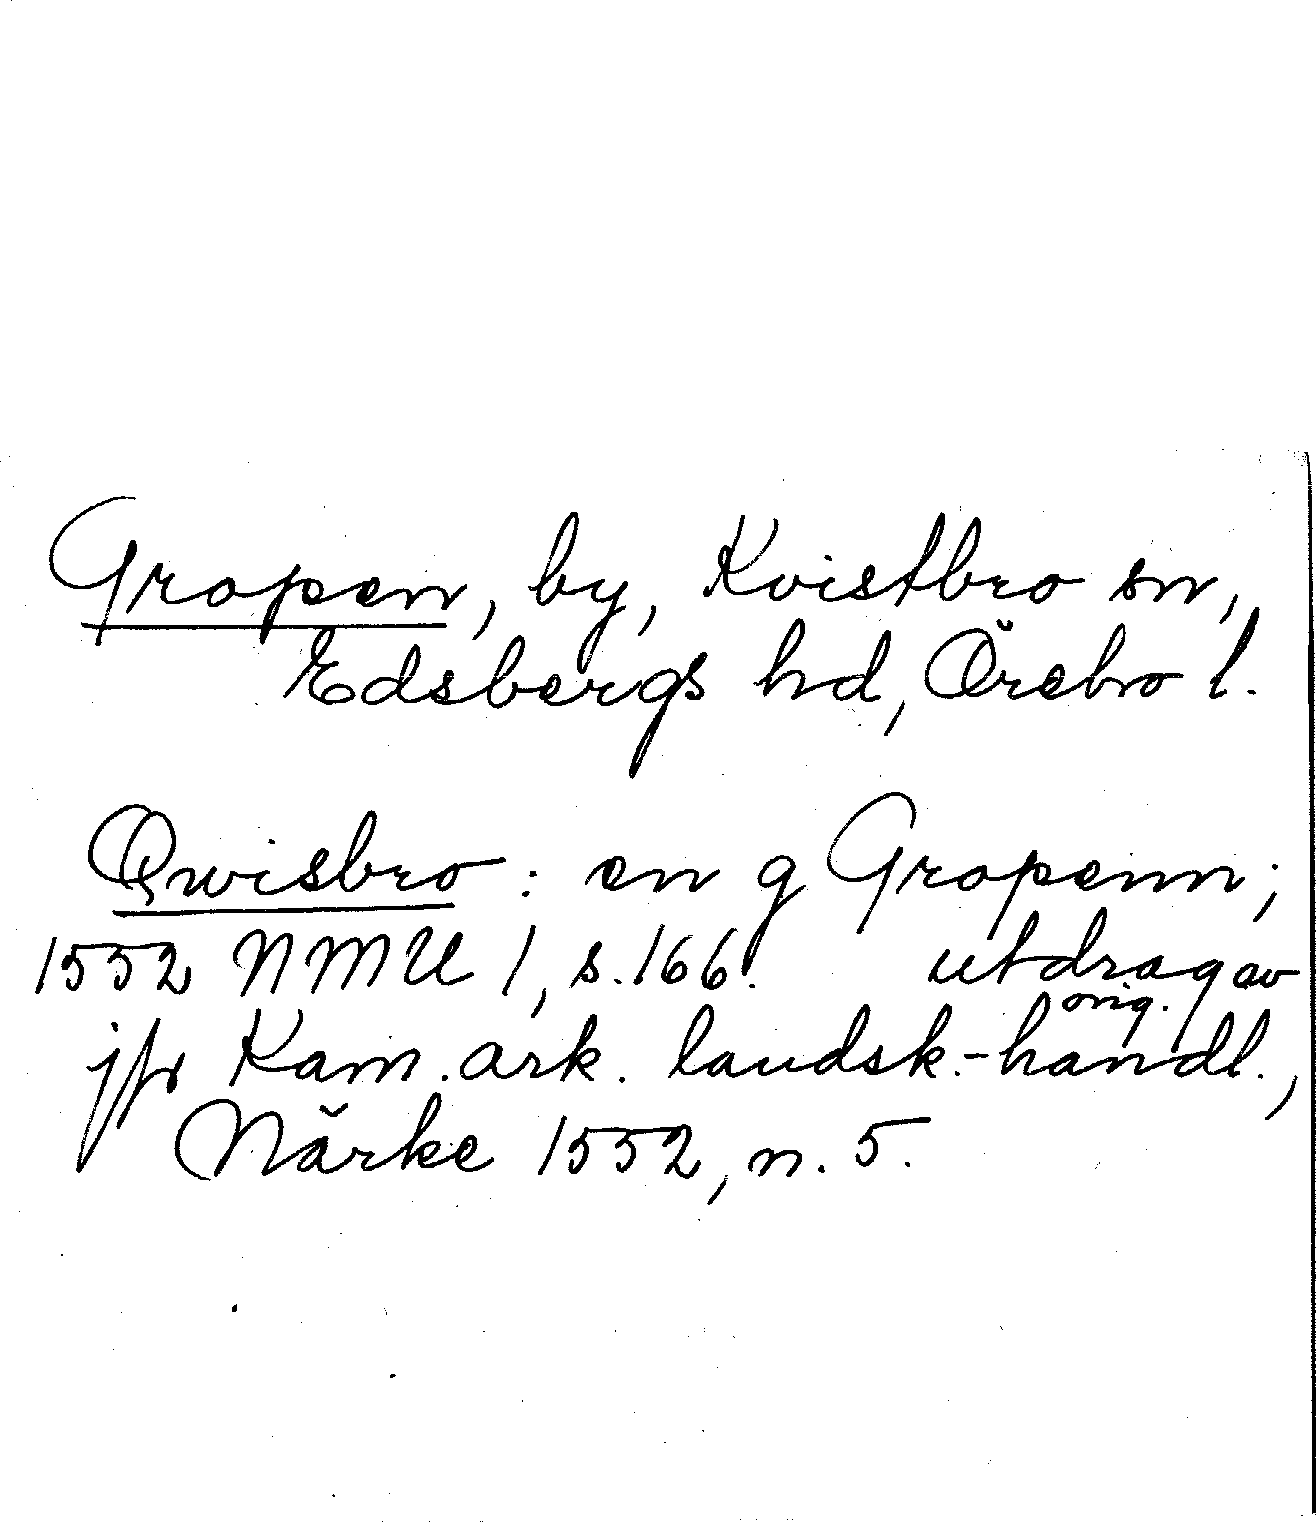 Gropen, by, Kvistbro sn,
Edsbergs hd, Örebro l.
Qwisbro : en g Gropenn ;
1552 NMU 1, s. 166. utdrag av
orig.
jfr Kam. ark. landsk.-handl.,
Närke 1552, n. 5.